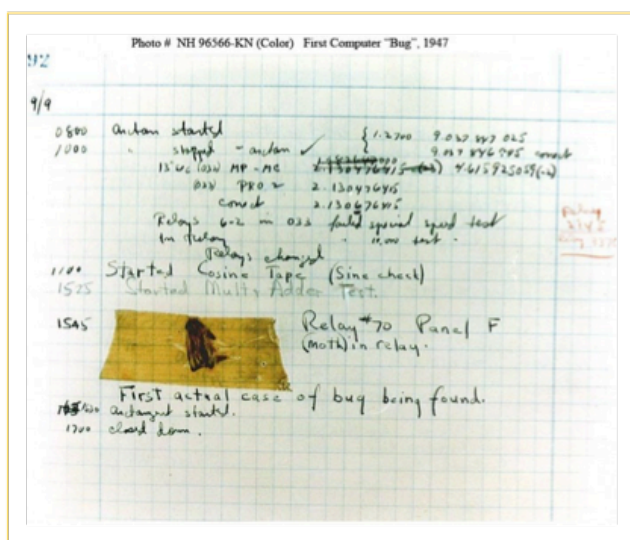 Photo # NH 96566-KN (Color) First Computer "Bug", 1947
92
9/9
0800 antan started { 1.2700 9.037 847 025
1000 " stopped - antan ✓ 9.037 846 995 correct
13"uc (032) MP-MC 2.130476415 (-3) 4.615925059(-2)
(033) PRO 2 2.130476415
correct 2.130676415
Relays 6-2 in 033 failed special speed test
in relay " 10.000 test.
Relays changed
1100 Started Cosine Tape (Sine check)
1525 Started Mult+Adder Test.
1545 Relay #70 Panel F
(moth) in relay.
First actual case of bug being found.
antangent started.
1700 closed down.
Relay